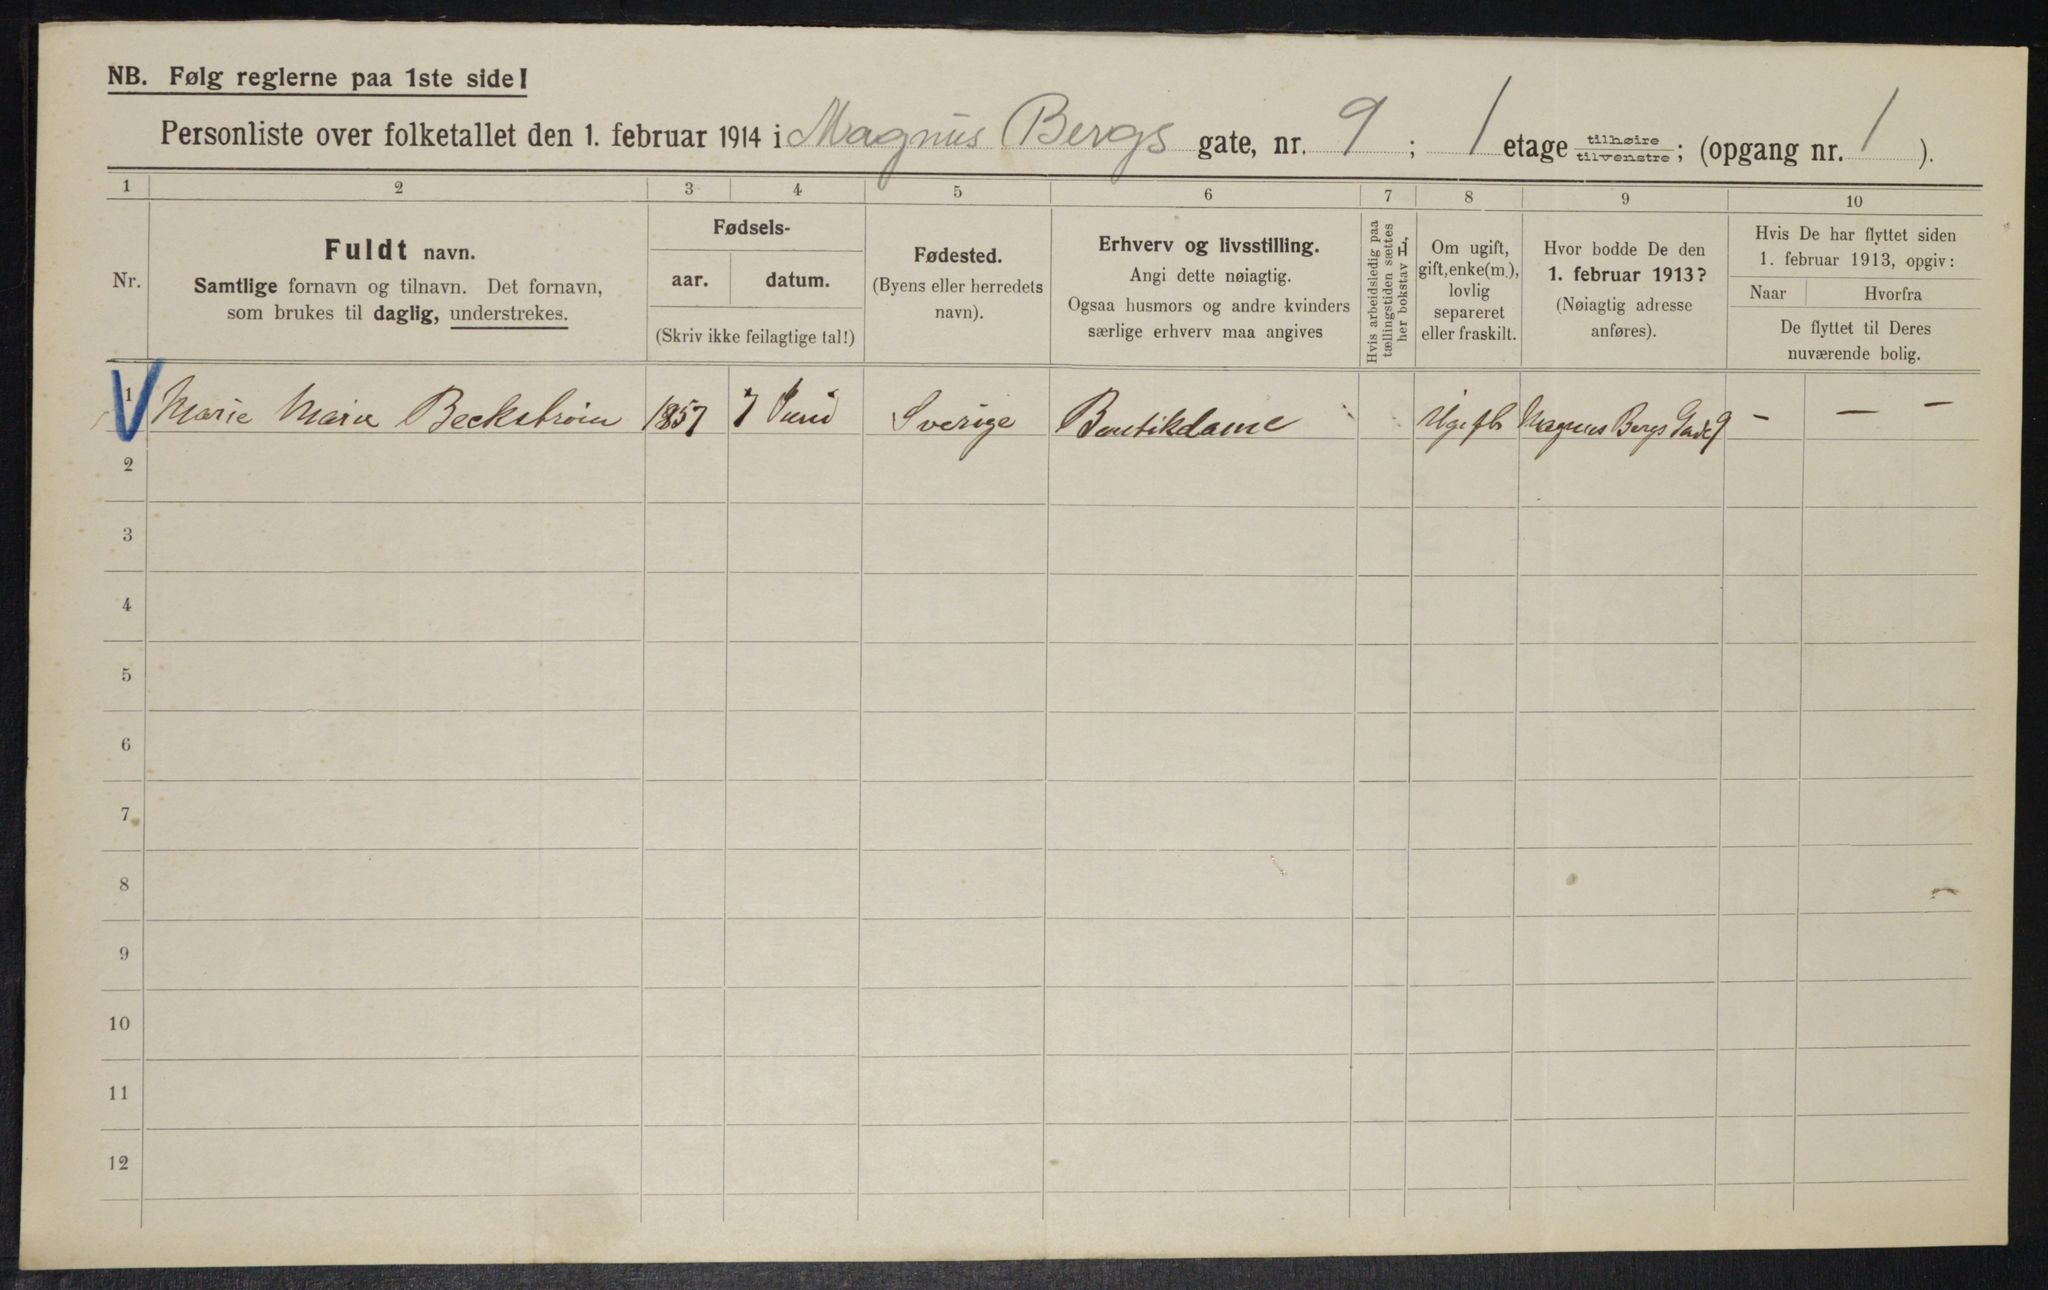 NB. Følg reglerne paa 1ste side!
Personliste over folketallet den 1. februar 1914 i Magnus Bergs gate, nr. 9 ; 1 etage tilhøire tilvenstre ; (opgang nr. 1 ).
1 2 3 4 5 6 7 8 9 10
Nr.
Fuldt navn.
Samtlige fornavn og tilnavn. Det fornavn,
som brukes til daglig, understrekes.
Fødsels-
aar. datum.
(Skriv ikke feilagtige tal!)
Fødested.
(Byens eller herredets
navn).
Erhverv og livsstilling.
Angi dette nøiagtig.
Ogsaa husmors og andre kvinders
særlige erhverv maa angives
Hvis arbeidsledig paa
tællingstiden sættes
her bokstav L.
Om ugift,
gift, enke(m.),
lovlig
separeret
eller fraskilt.
Hvor bodde De den
1. februar 1913?
(Nøiagtig adresse
anføres).
Hvis De har flyttet siden
1. februar 1913, opgiv:
Naar Hvorfra
De flyttet til Deres
nuværende bolig.
1 Marie Beckstrøm 1857 7 Juni Sverige Butikdame Ugift Magnus Bergs Gade 9 – – –
2
3
4
5
6
7
8
9
10
11
12